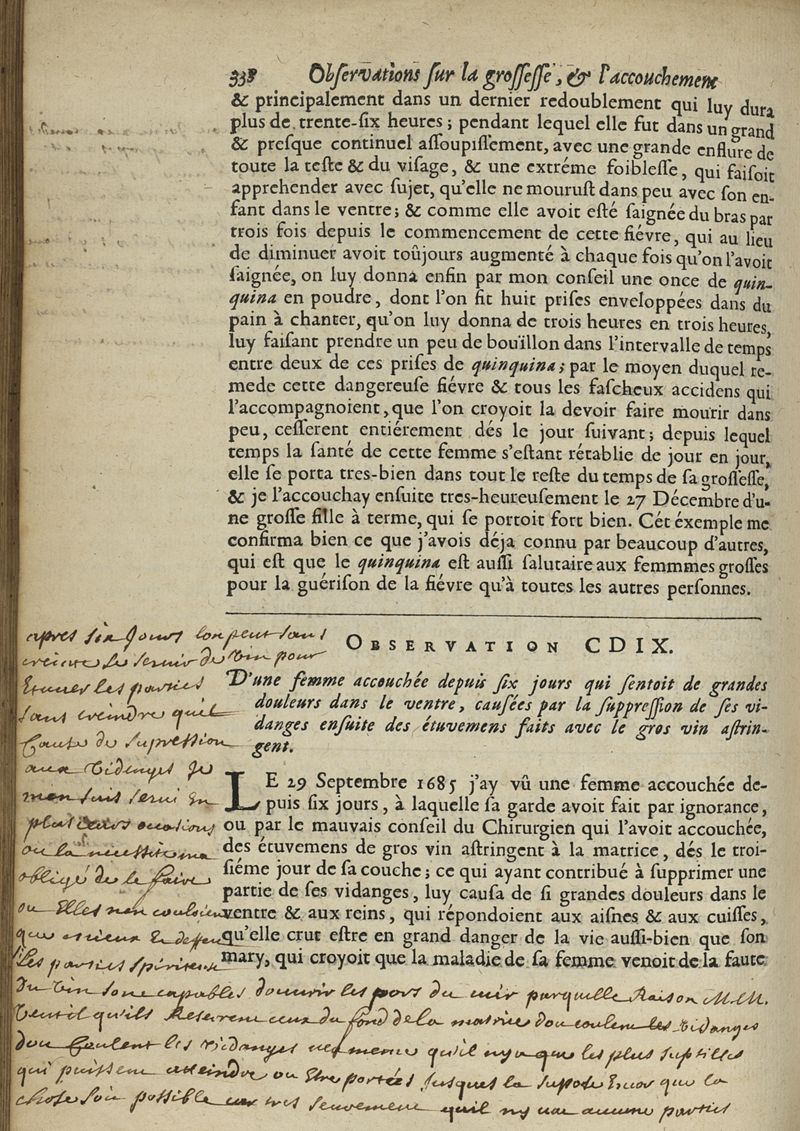 338 Obſervations ſur la groſſeſſe, & l'accouchement
& principalement dans un dernier redoublement qui luy dura
plus de trente-ſix heures; pendant lequel elle fut dans un grand
& preſque continuel aſſoupiſſement, avec une grande enflure de
toute la teſte & du viſage, & une extréme foibleſſe, qui faiſoit
apprehender avec ſujet, qu'elle ne mouruſt dans peu avec ſon en-
fant dans le ventre; & comme elle avoit eſté ſaignée du bras par
trois fois depuis le commencement de cette fiévre, qui au lieu
de diminuer avoit toûjours augmenté à chaque fois qu'on l'avoit
ſaignée, on luy donna enfin par mon conſeil une once de quin-
quina en poudre, dont l'on fit huit priſes enveloppées dans du
pain à chanter, qu'on luy donna de trois heures en trois heures,
luy faiſant prendre un peu de boüillon dans l'intervalle de temps
entre deux de ces priſes de quinquina; par le moyen duquel re-
mede cette dangereuſe fiévre & tous les faſcheux accidens qui
l'accompagnoient, que l'on croyoit la devoir faire mourir dans
peu, ceſſerent entiérement dés le jour ſuivant; depuis lequel
temps la ſanté de cette femme s'eſtant rétablie de jour en jour,
elle ſe porta tres-bien dans tout le reſte du temps de ſa groſſeſſe,
& je l'accouchay enſuite tres-heureuſement le 27 Décembre d'u-
ne groſſe fille à terme, qui ſe portoit fort bien. Cét éxemple me
confirma bien ce que j'avois déja connu par beaucoup d'autres,
qui eſt que le quinquina eſt auſſi ſalutaire aux femmmes groſſes
pour la guériſon de la fiévre qu'à toutes les autres perſonnes.
OBSERVATION CDIX.
D'une femme accouchée depuis ſix jours qui ſentoit de grandes
douleurs dans le ventre, cauſées par la ſuppreſſion de ſes vi-
danges enſuite des étuvemens faits avec le gros vin aſtrin-
gent.
LE 29 Septembre 1685 j'ay vû une femme accouchée de-
puis ſix jours, à laquelle ſa garde avoit fait par ignorance,
ou par le mauvais conſeil du Chirurgien qui l'avoit accouchée,
des étuvemens de gros vin aſtringent à la matrice, dés le troi-
ſiéme jour de ſa couche; ce qui ayant contribué à ſupprimer une
partie de ſes vidanges, luy cauſa de ſi grandes douleurs dans le
ventre & aux reins, qui répondoient aux aiſnes & aux cuiſſes,
qu'elle crut eſtre en grand danger de la vie auſſi-bien que ſon
mary, qui croyoit que la maladie de ſa femme venoit de la faute
apres six Jours lon peut sans
creinte se servir du vin pour
Etuver les parties
sans creindre quil
Cause de supression
aux Videnges Je
men suis servi en
plusieurs occasions
ou la necessité ma
obligé de le faire
ou Elles
les parties spiritueux
du vin sont capables douvrir les pors du cuir par quelle Raison M.M.
Veut il qu'ils Reserrent ceux du fond de la matrice dou coulent les vidanges
dou Coulent les vidanges mesme qu'il ny a que les plus suptiles
qui puissent atteindre ou Etre portées Jusques la que la
chose soit possible car tres seurement quil ny va aucune parties